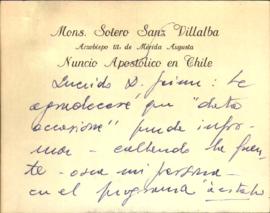 Mons. Sotero Sanz Villalba
Arzobispo tit. de Mérida Augusta
Nuncio Apostólico en Chile
Querido D. Jaime: Le
agradeceré que "data
occasione" pueda infor-
mar - callando la fuen-
te - a mi persona
en el programa